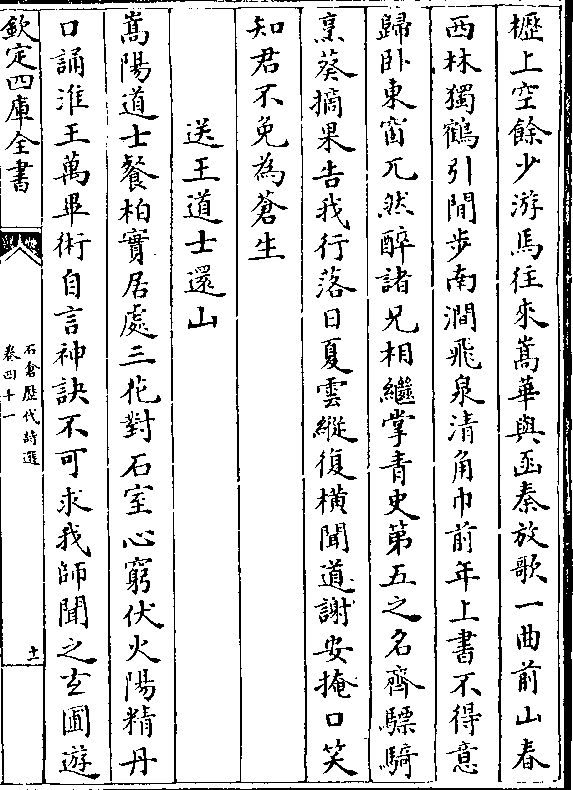 櫪上空餘少游馬往來嵩華與函秦放歌一曲前山春
西林獨鶴引閒步南澗飛泉清角巾前年上書不得意
歸卧東窗兀然醉諸兄相繼掌青史第五之名齊驃騎
烹葵摘果告我行落日夏雲縱復橫聞道謝安掩口笑
知君不免為蒼生
送王道士還山
嵩陽道士餐柏實居處三花對石室心窮伏火陽精丹
口誦淮王萬畢術自言神訣不可求我師聞之玄圃遊
欽定四庫全書
石倉歷代詩選
卷四十一
十一